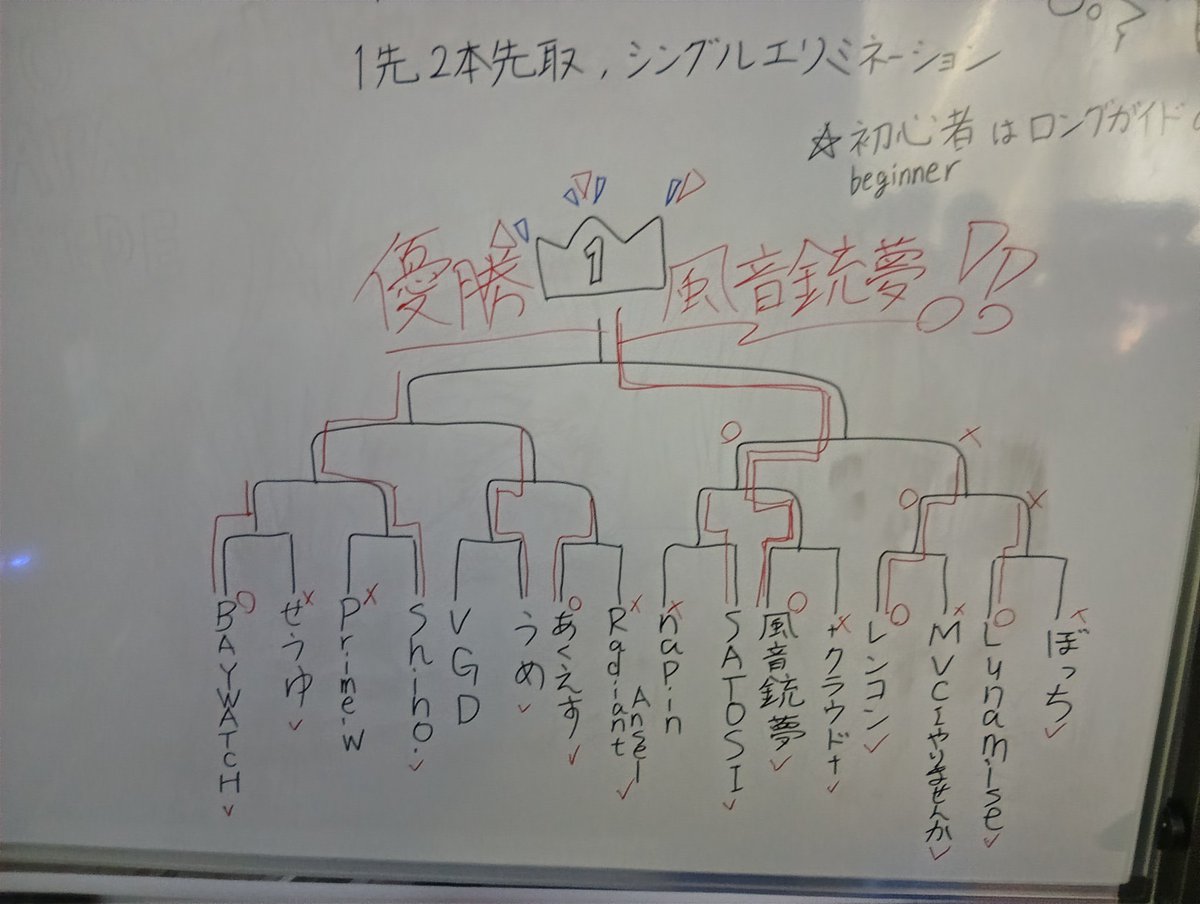 1先2本先取，シングルエリミネーション
☆初心者はロングガイド
beginner
優勝 1 風音銃夢!!
BAYWATCH
せうゆ
Prime.W
Shiho.
VGD
うめ
あくえす
Radiant Ansel
napin
SATOSI
風音銃夢
+クラウド+
レンコン
MVCIやりませんか
Lunamise
ぼっち